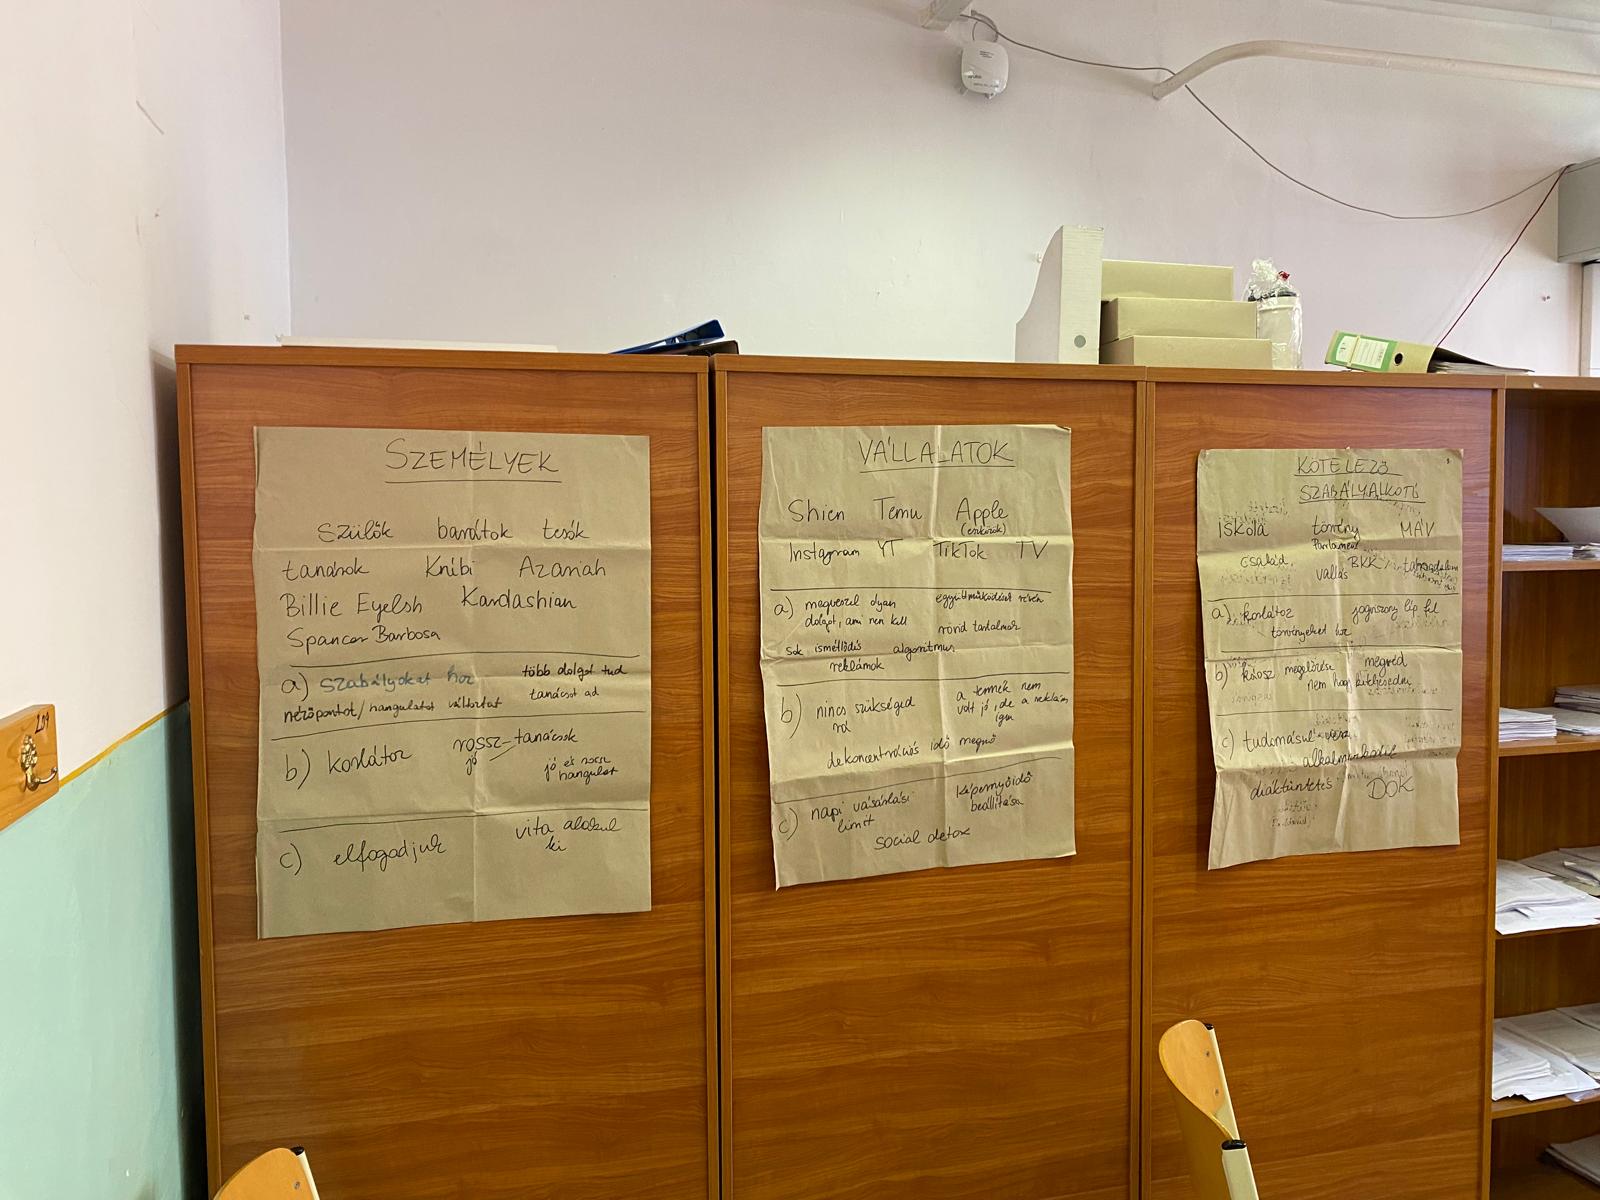 SZEMÉLYEK
szülők barátok tesók
tanárok Knibi Azariah
Billie Eyelsh Kardashian
Spancer Barbosa
a) szabályokat hoz több dolgot tud
tanácsot ad
nézőpontot/hangulatot változtat
b) korlátoz rossz tanácsok
jó jó és rossz
hangulat
c) elfogadjuk vita alakul
ki
VÁLLALATOK
Shien Temu Apple
(eszközök)
Instagram YT TikTok TV
a) megveszel olyan együttműködések révén
dolgot, ami nem kell
rövid tartalmak
sok ismétlődés algoritmus
reklámok
b) nincs szükséged a termék nem
rá volt jó, de a reklám
igen
dekoncentrációs idő megnő
c) napi vásárlási képernyőidő
limit beállítása
social detox
KÖTELEZŐ
SZABÁLYALKOTÓ
iskola törvény MÁV
Parlament
család BKK társadalom
vallás
a) korlátoz jogviszony lép fel
törvényeket hoz
b) káosz megelőzése megvéd
nem hagy kiteljesedni
c) tudomásul vesz
alkalmazkodik
diáktüntetés DÖK
209